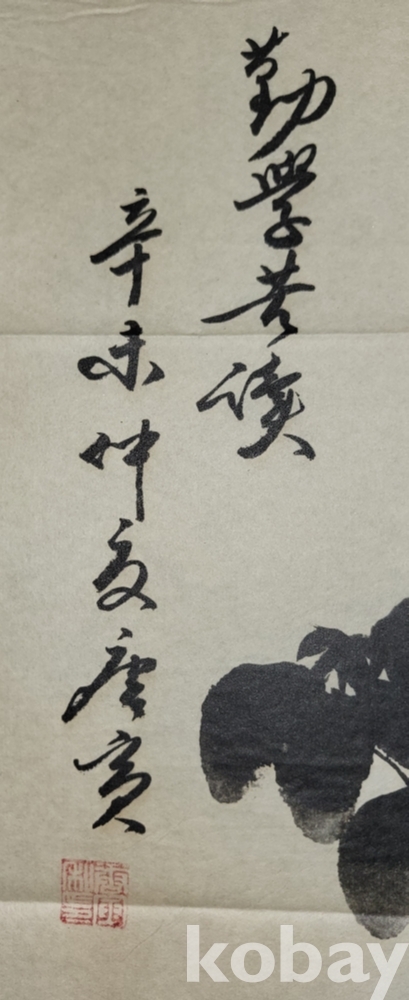 勤學苦讀
辛未仲夏唐寅
kobay